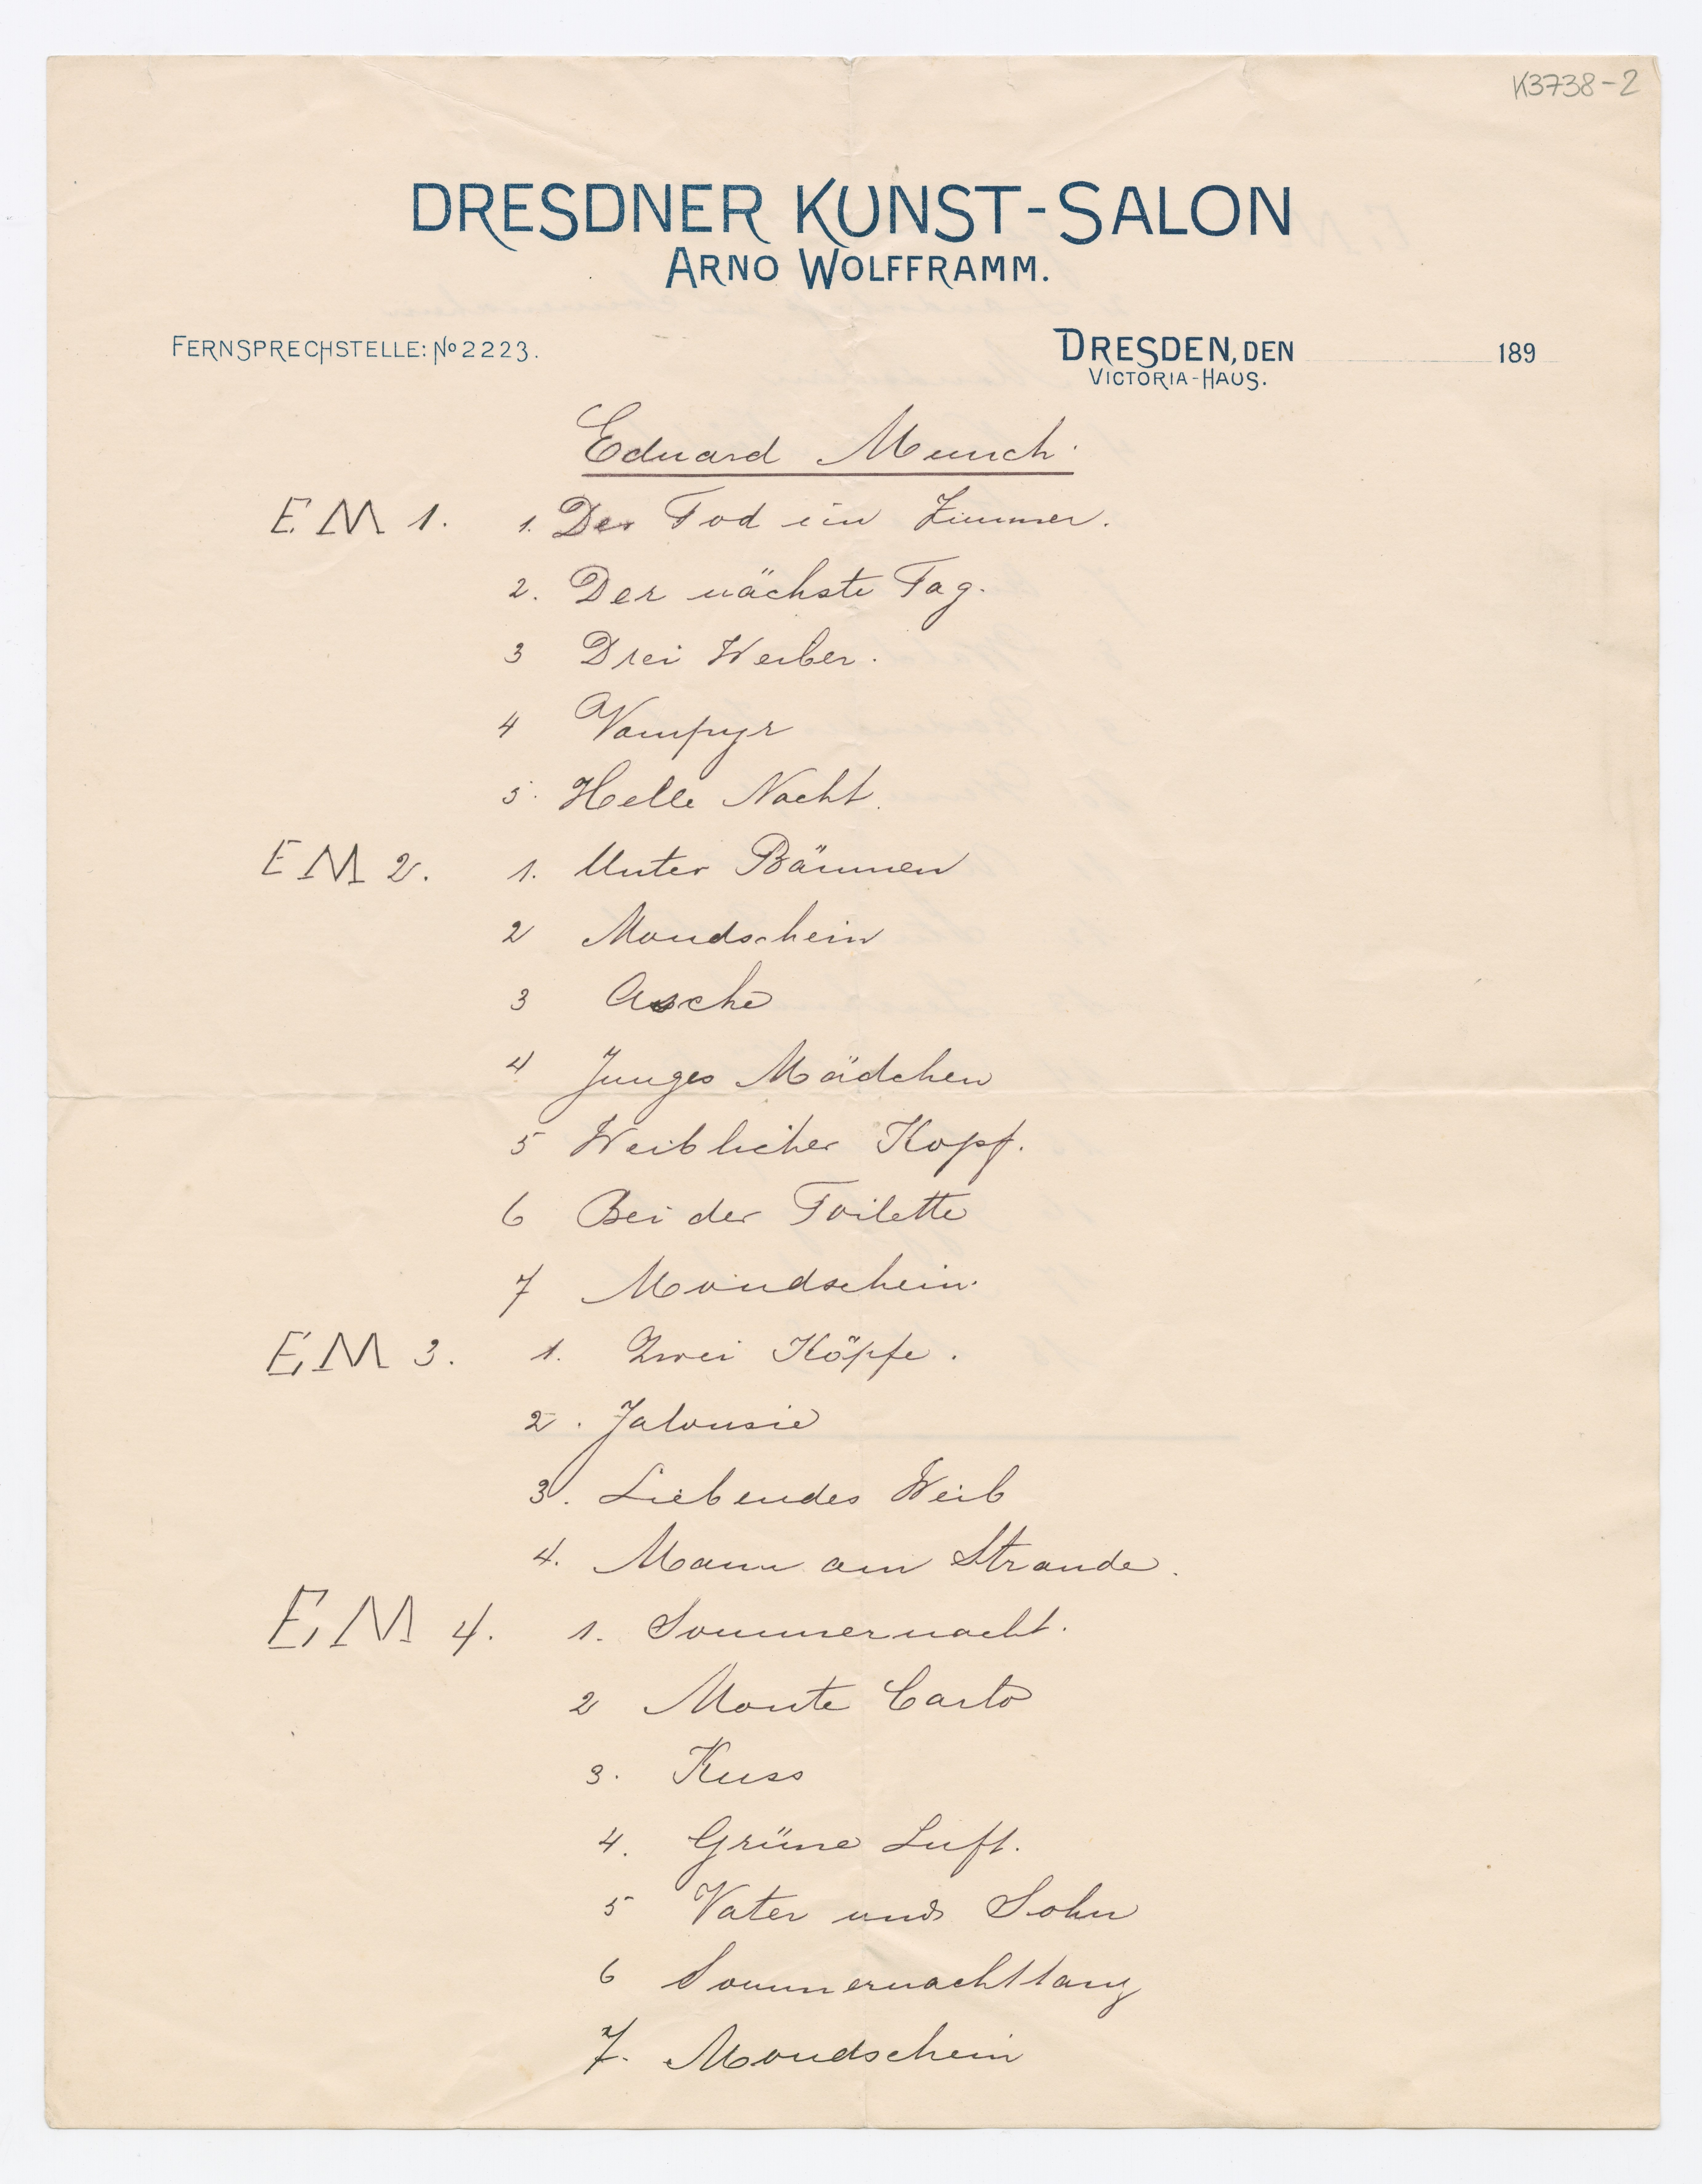 K3738-2
DRESDNER KUNST-SALON
ARNO WOLFFRAMM.
FERNSPRECHSTELLE: No 2223.
DRESDEN, DEN 189
VICTORIA-HAUS.
Eduard Munch.
E M 1. 1. Der Tod im Zimmer.
2. Der nächste Tag.
3 Drei Weiber.
4 Vampyr
5. Helle Nacht.
E M 2. 1. Unter Bäumen
2 Mondschein
3 Asche
4 Junges Mädchen
5 Weiblicher Kopf.
6 Bei der Toilette
7 Mondschein.
E M 3. 1. Zwei Köpfe.
2. Jalousie
3. Liebendes Weib
4. Mann am Strande.
E M 4. 1. Sommernacht.
2 Monte Carlo
3. Kuss
4. Grüne Luft.
5 Vater und Sohn
6 Sommernachttanz
7. Mondschein